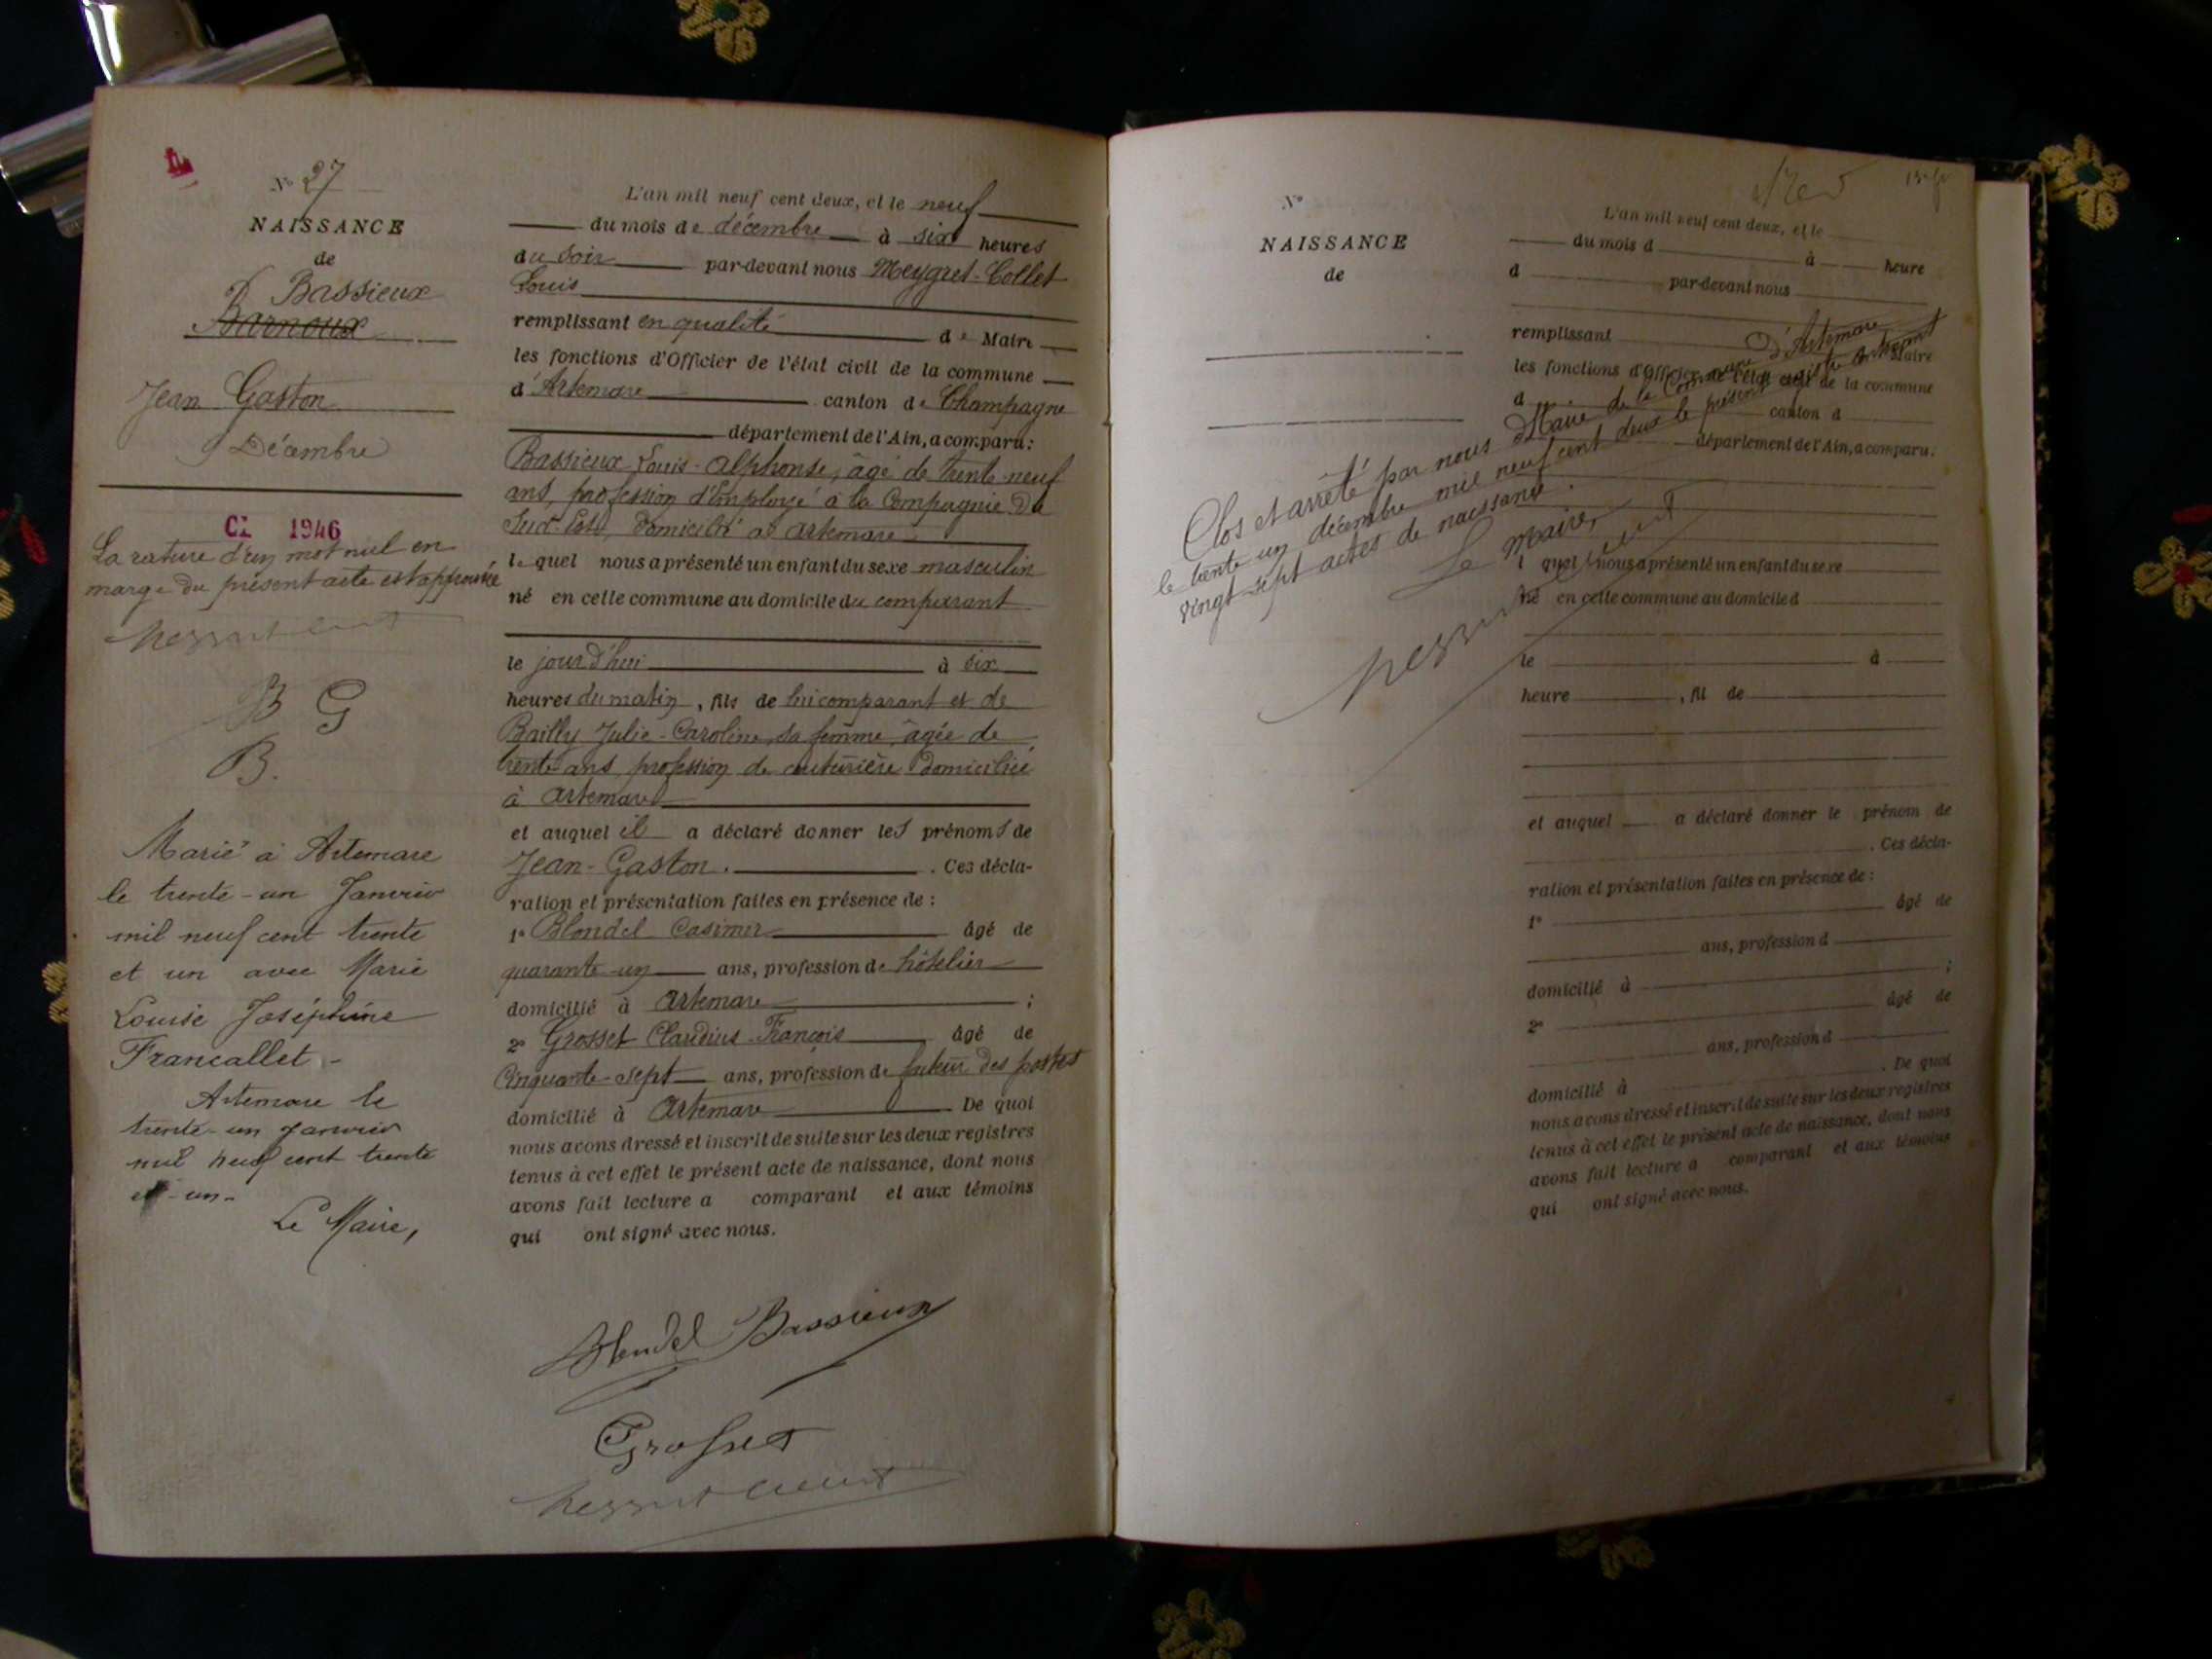 N° 27
NAISSANCE
de
Bassieux
Barnoux
Jean Gaston
9 Décembre
CI 1946
La rature d'un mot nul en
marge du présent acte est approuvée
B G
B.
Marié à Artemare
le trente-un Janvier
mil neuf cent trente
et un avec Marie
Louise Joséphine
Francallet -
Artemare le
trente-un Janvier
mil neuf cent trente
et-un-
Le Maire,
L'an mil neuf cent deux, et le neuf
du mois de décembre à six heures
du soir par-devant nous Meygret-Collet
Louis
remplissant en qualité de Maire
les fonctions d'Officier de l'état civil de la commune
d'Artemare canton de Champagne
département de l'Ain, a comparu:
Bassieux Louis-Alphonse, âgé de trente-neuf
ans, profession d'Employé à la Compagnie du
Sud-Est, domicilié à Artemare
lequel nous a présenté un enfant du sexe masculin
né en cette commune au domicile du comparant
le jour d'hui à six
heures du matin, fils de lui comparant et de
Bailly Julie-Caroline, sa femme, âgée de
trente ans, profession de couturière domiciliée
à Artemare
et auquel il a déclaré donner les prénoms de
Jean-Gaston. . Ces décla-
ration et présentation faites en présence de :
1° Blondel Casimir âgé de
quarante-un ans, profession de hôtelier
domicilié à Artemare ;
2° Grosset Claudius-François âgé de
Cinquante-sept ans, profession de facteur des postes
domicilié à Artemare De quoi
nous avons dressé et inscrit de suite sur les deux registres
tenus à cet effet le présent acte de naissance, dont nous
avons fait lecture a comparant et aux témoins
qui ont signé avec nous.
Blondel Bassieux
Grosset
N°
NAISSANCE
de
L'an mil neuf cent deux, et le
du mois d à heure
d par-devant nous
remplissant Maire
les fonctions d'Officier de l'état civil de la commune
d canton d
département de l'Ain, a comparu:
Clos et arrêté par nous Maire de la Commune d'Artemare
le trente un décembre mil neuf cent deux le présent registre contenant
vingt-sept actes de naissance.
Le Maire,
l quel nous a présenté un enfant du sexe
né en cette commune au domicile d
le à
heure , fil de
et auquel a déclaré donner le prénom de
. Ces décla-
ration et présentation faites en présence de :
1° âgé de
ans, profession d
domicilié à ;
2° âgé de
ans, profession d
domicilié à . De quoi
nous avons dressé et inscrit de suite sur les deux registres
tenus à cet effet le présent acte de naissance, dont nous
avons fait lecture a comparant et aux témoins
qui ont signé avec nous.